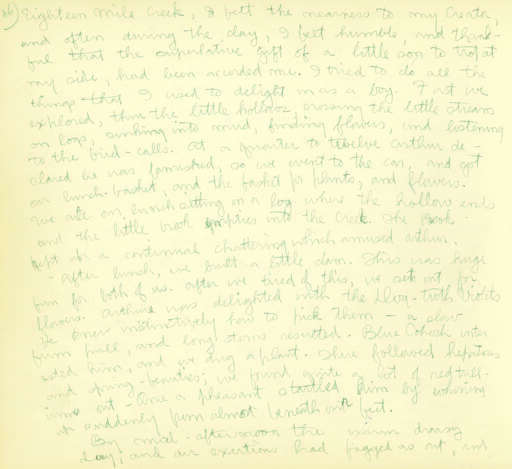 Eighteen Mile Creek, I felt the nearness to my Creator,
and often during the day, I felt humble, and thank-
ful that the superlative gift of a little son to trot at
my side, had been accorded me. I tried to do all the
things that I used to delight in as a boy. First we
explored, thru the little hollows, crossing the little streams
on logs, sinking into mud, finding flowers, and listening
to the bird-calls. At a quarter to twelve Arthur de-
clared he was famished, so we went to the car, and got
our lunch-basket, and the basket for plants, and flowers.
We ate our lunch sitting on a log where the hollow ends
and the little brook empties into the Creek. The
kept up a continual chattering which amused Arthur.
- After lunch, we built a little dam. This was huge
fun for both of us. After we tired of this, we set out for
flowers. Arthur was delighted with the Dog-Tooth Violets
He knew instinctively how to pick them - a slow
firm pull, and long stems resulted. Blue Cohosh inter
ested him, and we dug a plant. Then followed hepaticas
and spring-beauties; we found quite a lot of red
out - Once a pheasant startled him by
up suddenly from almost beneath our feet.
By mid-afternoon the warm drowsy
day, and our exertions had fagged us out, and